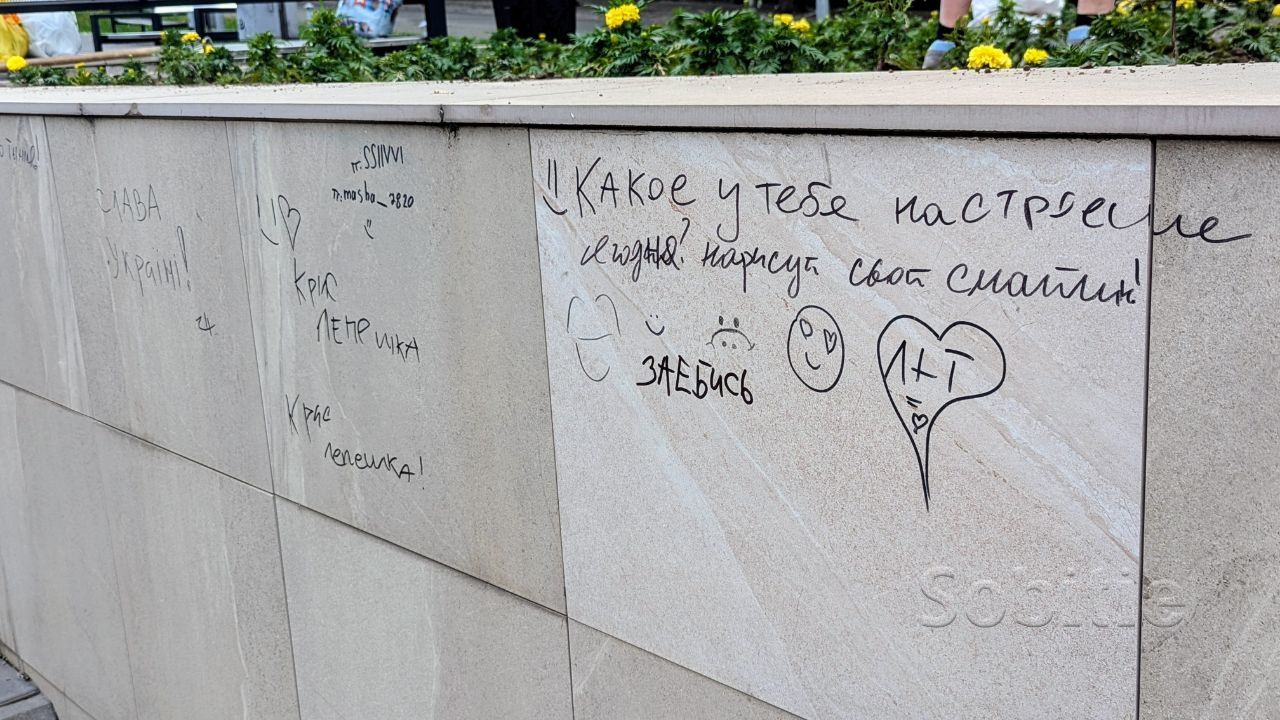 СЛАВА
Україні!
тг. SSIIWI
тг. masha_7820
Кріс
ЛЕПЕШКА
Крис
лепешка!
Какое у тебя настроение
сегодня? нарисуй свой смайлик!
ЗАЕБИСЬ
Л+Т
=
Sobitie